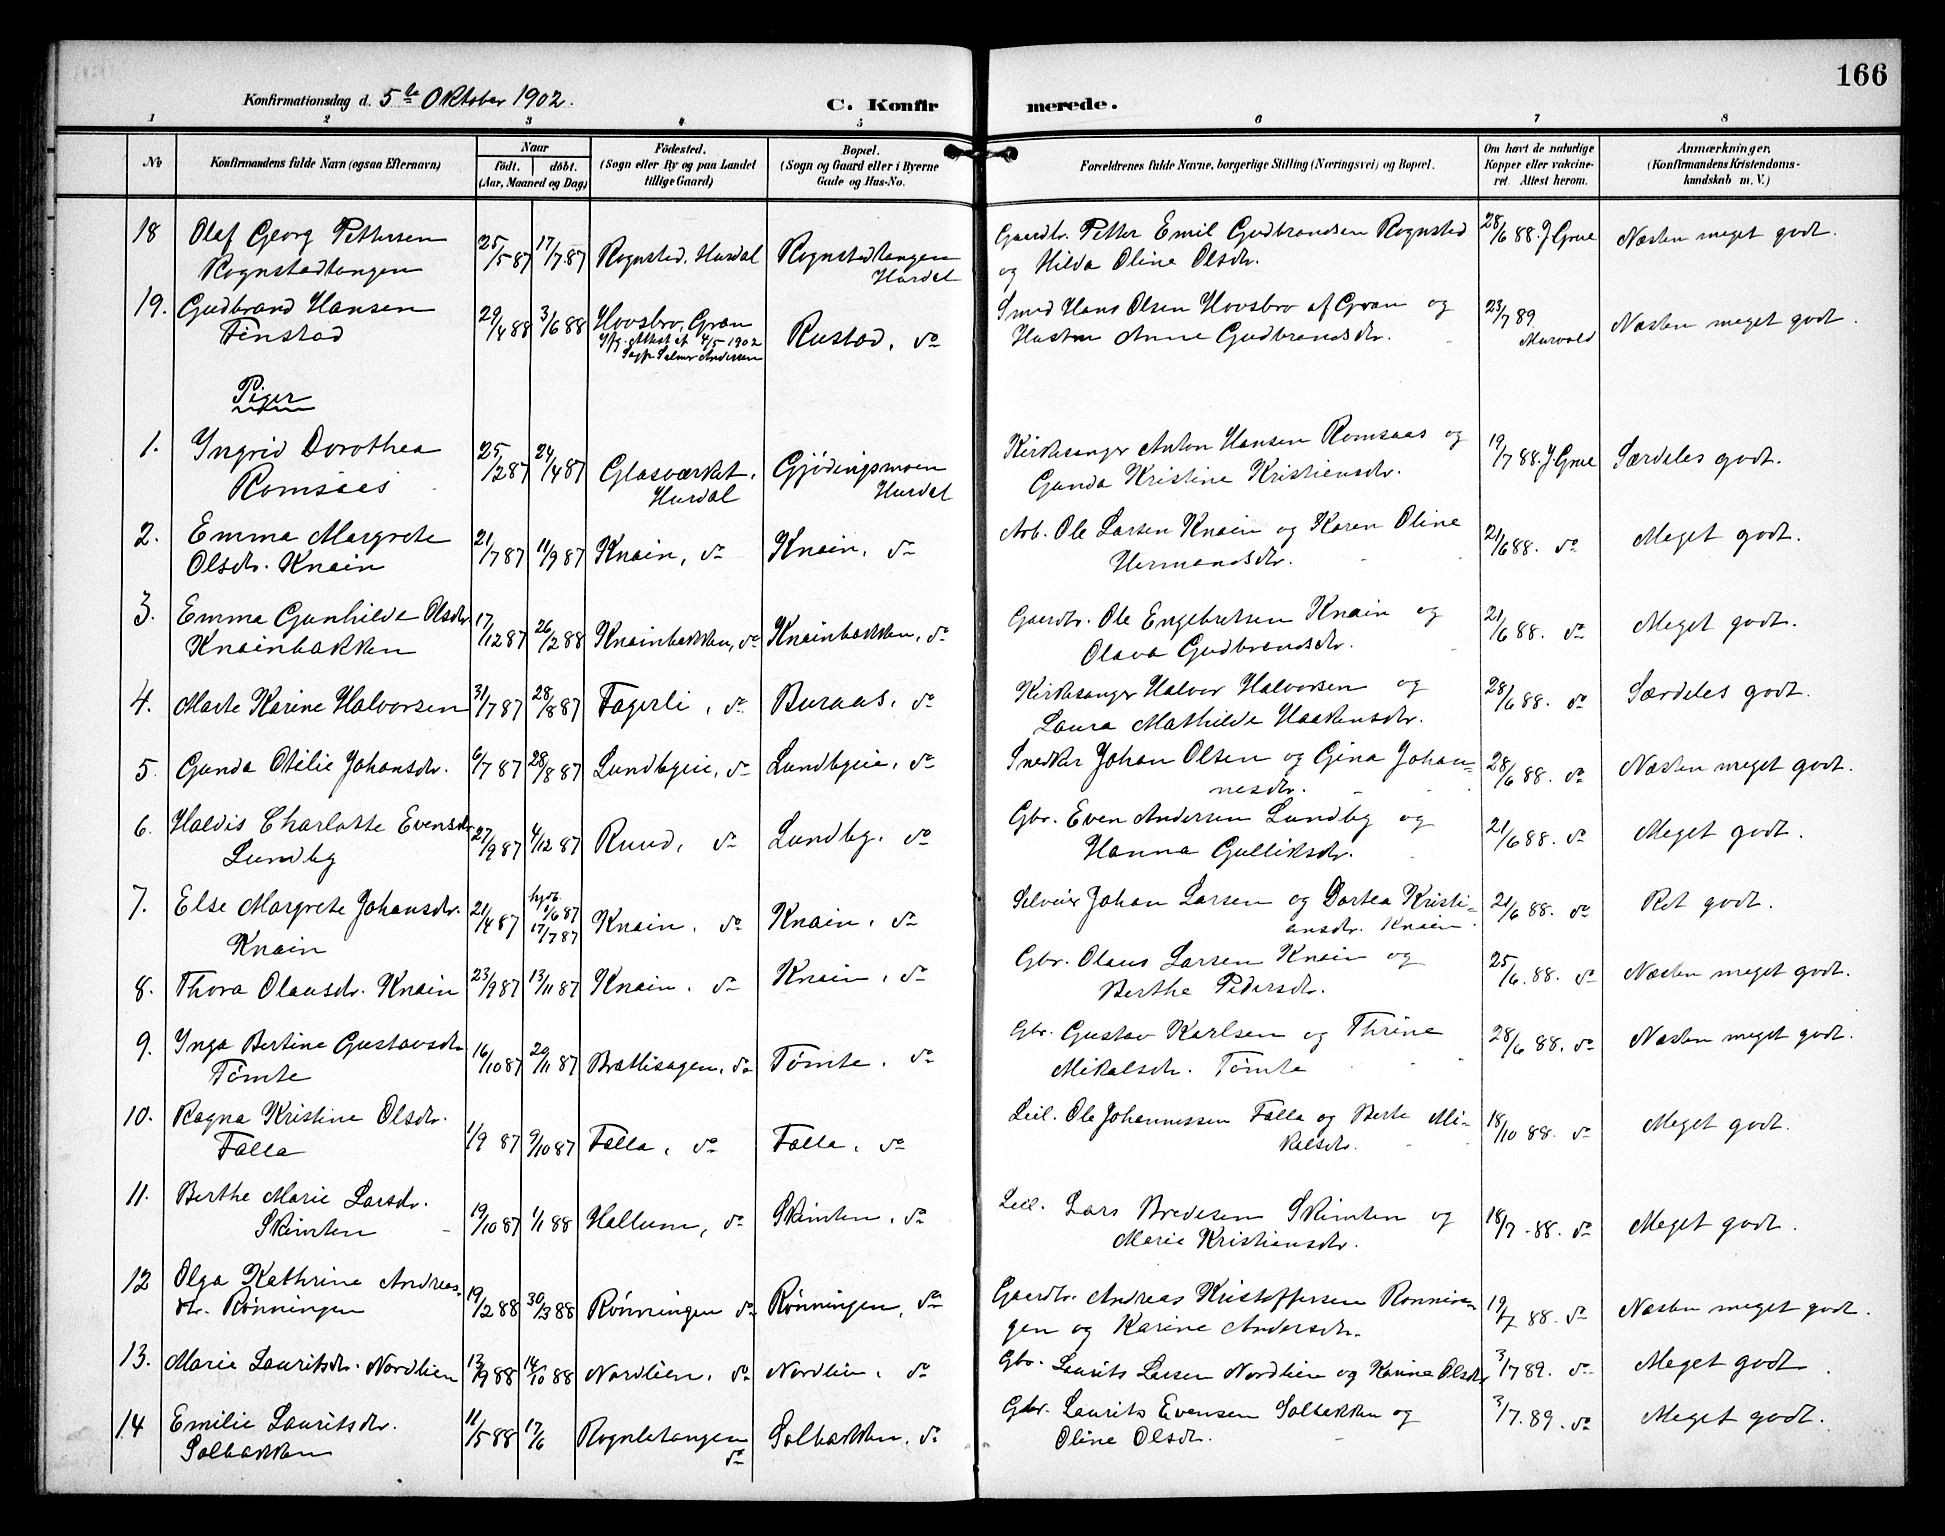 166
Konfirmationsdag d. 5te Oktober 1902.
C. Konfirmerede.
1 2 3 4 5 6 7 8
No
Konfirmandens fulde Navn (ogsaa Efternavn)
Naar
født. døbt.
(Aar, Maaned og Dag)
Fødested.
(Sogn eller By og paa Landet
tillige Gaard)
Bopæl.
(Sogn og Gaard eller i Byerne
Gade og Hus-No.
Forældrenes fulde Navne, borgerlige Stilling (Næringsvei) og Bopæl.
Om havt de naturlige
Kopper eller vakcine-
ret Attest herom.
Anmærkninger.
(Konfirmandens Kristendoms-
kundskab m. V.)
18 Olaf Georg Pettersen 25/5 87 17/7 87 Rognstad, Hurdal Rognstadtangen Gaardbr. Petter Emil Gudbrandsen Rognstad 28/6 88. J Grue Næsten meget godt.
Rognstadtangen Hurdal og Hilda Oline Olsdr.
19. Gudbrand Hansen 29/4 88 3/6 88 Hovsbro, Gran Rustad, do Smed Hans Olsen Hovsbro af Gran og 23/7 89 Næsten meget godt.
Finstad Ifg. Attest af 4/5 1902 Hustru Anne Gudbrandsdr. Murvold
Sogpr Selmer Andersen
Piger
1. Yngrid Dorothea 25/2 87 24/4 87 Glasværket, Gjødingsmoen Kirkesanger Anton Hansen Romsaas og 19/7 88. J Grue Særdeles godt.
Romsaas Hurdal Hurdal Gunda Kristine Kristiansdr.
2. Emma Margrete 21/7 87 11/9 87 Knain, do Knain, do Arb. Ole Larsen Knain og Karen Oline 21/6 88. do Meget godt.
Olsdr. Knain Hermandsdr.
3. Emma Gunhilde Olsdr. 17/12 87 26/2 88 Knainbakken, do Knainbakken, do Gaardbr. Ole Engebretsen Knain og 21/6 88. do Meget godt.
Knainbakken Olava Gudbrandsdr.
4. Marte Karine Halvorsen 31/7 87 28/8 87 Fagerli, do Buraas, do Kirkesanger Halvor Halvorsen og 28/6 88. do Særdeles godt.
Laura Mathilde Haakensdr.
5. Gunda Otilie Johansdr. 6/7 87 28/8 87 Lundbyeie, do Lundbyeie, do Snedker Johan Olsen og Gina Johan- 28/6 88. do Næsten meget godt.
nesdr.
6. Haldis Charlotte Evensdr. 27/9 87 4/12 87 Ruud, do Lundby, do Gbr. Even Andersen Lundby og 21/6 88. do Meget godt.
Lundby Hanna Gulliksdr.
7. Else Margrete Johansdr. 21/4 87 hjdt. 1/6 87 17/7 87 Knain, do Knain, do Selveier Johan Larsen og Dortea Kristi- 21/6 88. do Ret godt.
Knain ansdr. Knain
8. Thora Olausdr. Knain 23/9 87 13/11 87 Knain, do Knain, do Gbr. Olaus Larsen Knain og 25/6. 88. do Næsten meget godt.
Berthe Pedersdr.
9. Inga Bertine Gustavsdr. 16/10 87 20/11 87 Brattisagen, do Tømte, do Gbr. Gustav Karlsen og Thrine 28/6 88. do Næsten meget godt.
Tømte Mikalsdr. Tømte
10. Ragna Kristine Olsdr. 1/9 87 9/10 87 Falla, do Falla, do Leil. Ole Johannessen Falla og Berte Mi- 18/10 88. do Meget godt.
Falla kalsdr.
11. Berthe Marie Larsdr. 19/10 87 1/1 88 Hallum, do Skimten, do Leil. Lars Bredesen Skimten og 18/7. 88. do Meget godt.
Skimten Marie Kristiansdr.
12 Olga Kathrine Andreas- 19/2 88 30/3 88 Rønningen do Rønningen, do Gaardbr. Andreas Kristoffersen Ronnin- 19/7 88. do Næsten meget godt.
dr. Rønningen gen og Karine Andersdr.
13. Marie Lauritsdr. Nordlien 13/9 88 14/10 88 Nordlien, do Nordlien, do Gbr. Laurits Larsen Nordlien og Karine Olsdr. 3/7 89. do Meget godt
14 Emilie Lauritsdr. 11/5 88 17/6 Rognletangen Solbakken, do Gbr. Laurits Evensen Solbakken og 3/7. 89. do Meget godt.
Solbakken do Oline Olsdr.